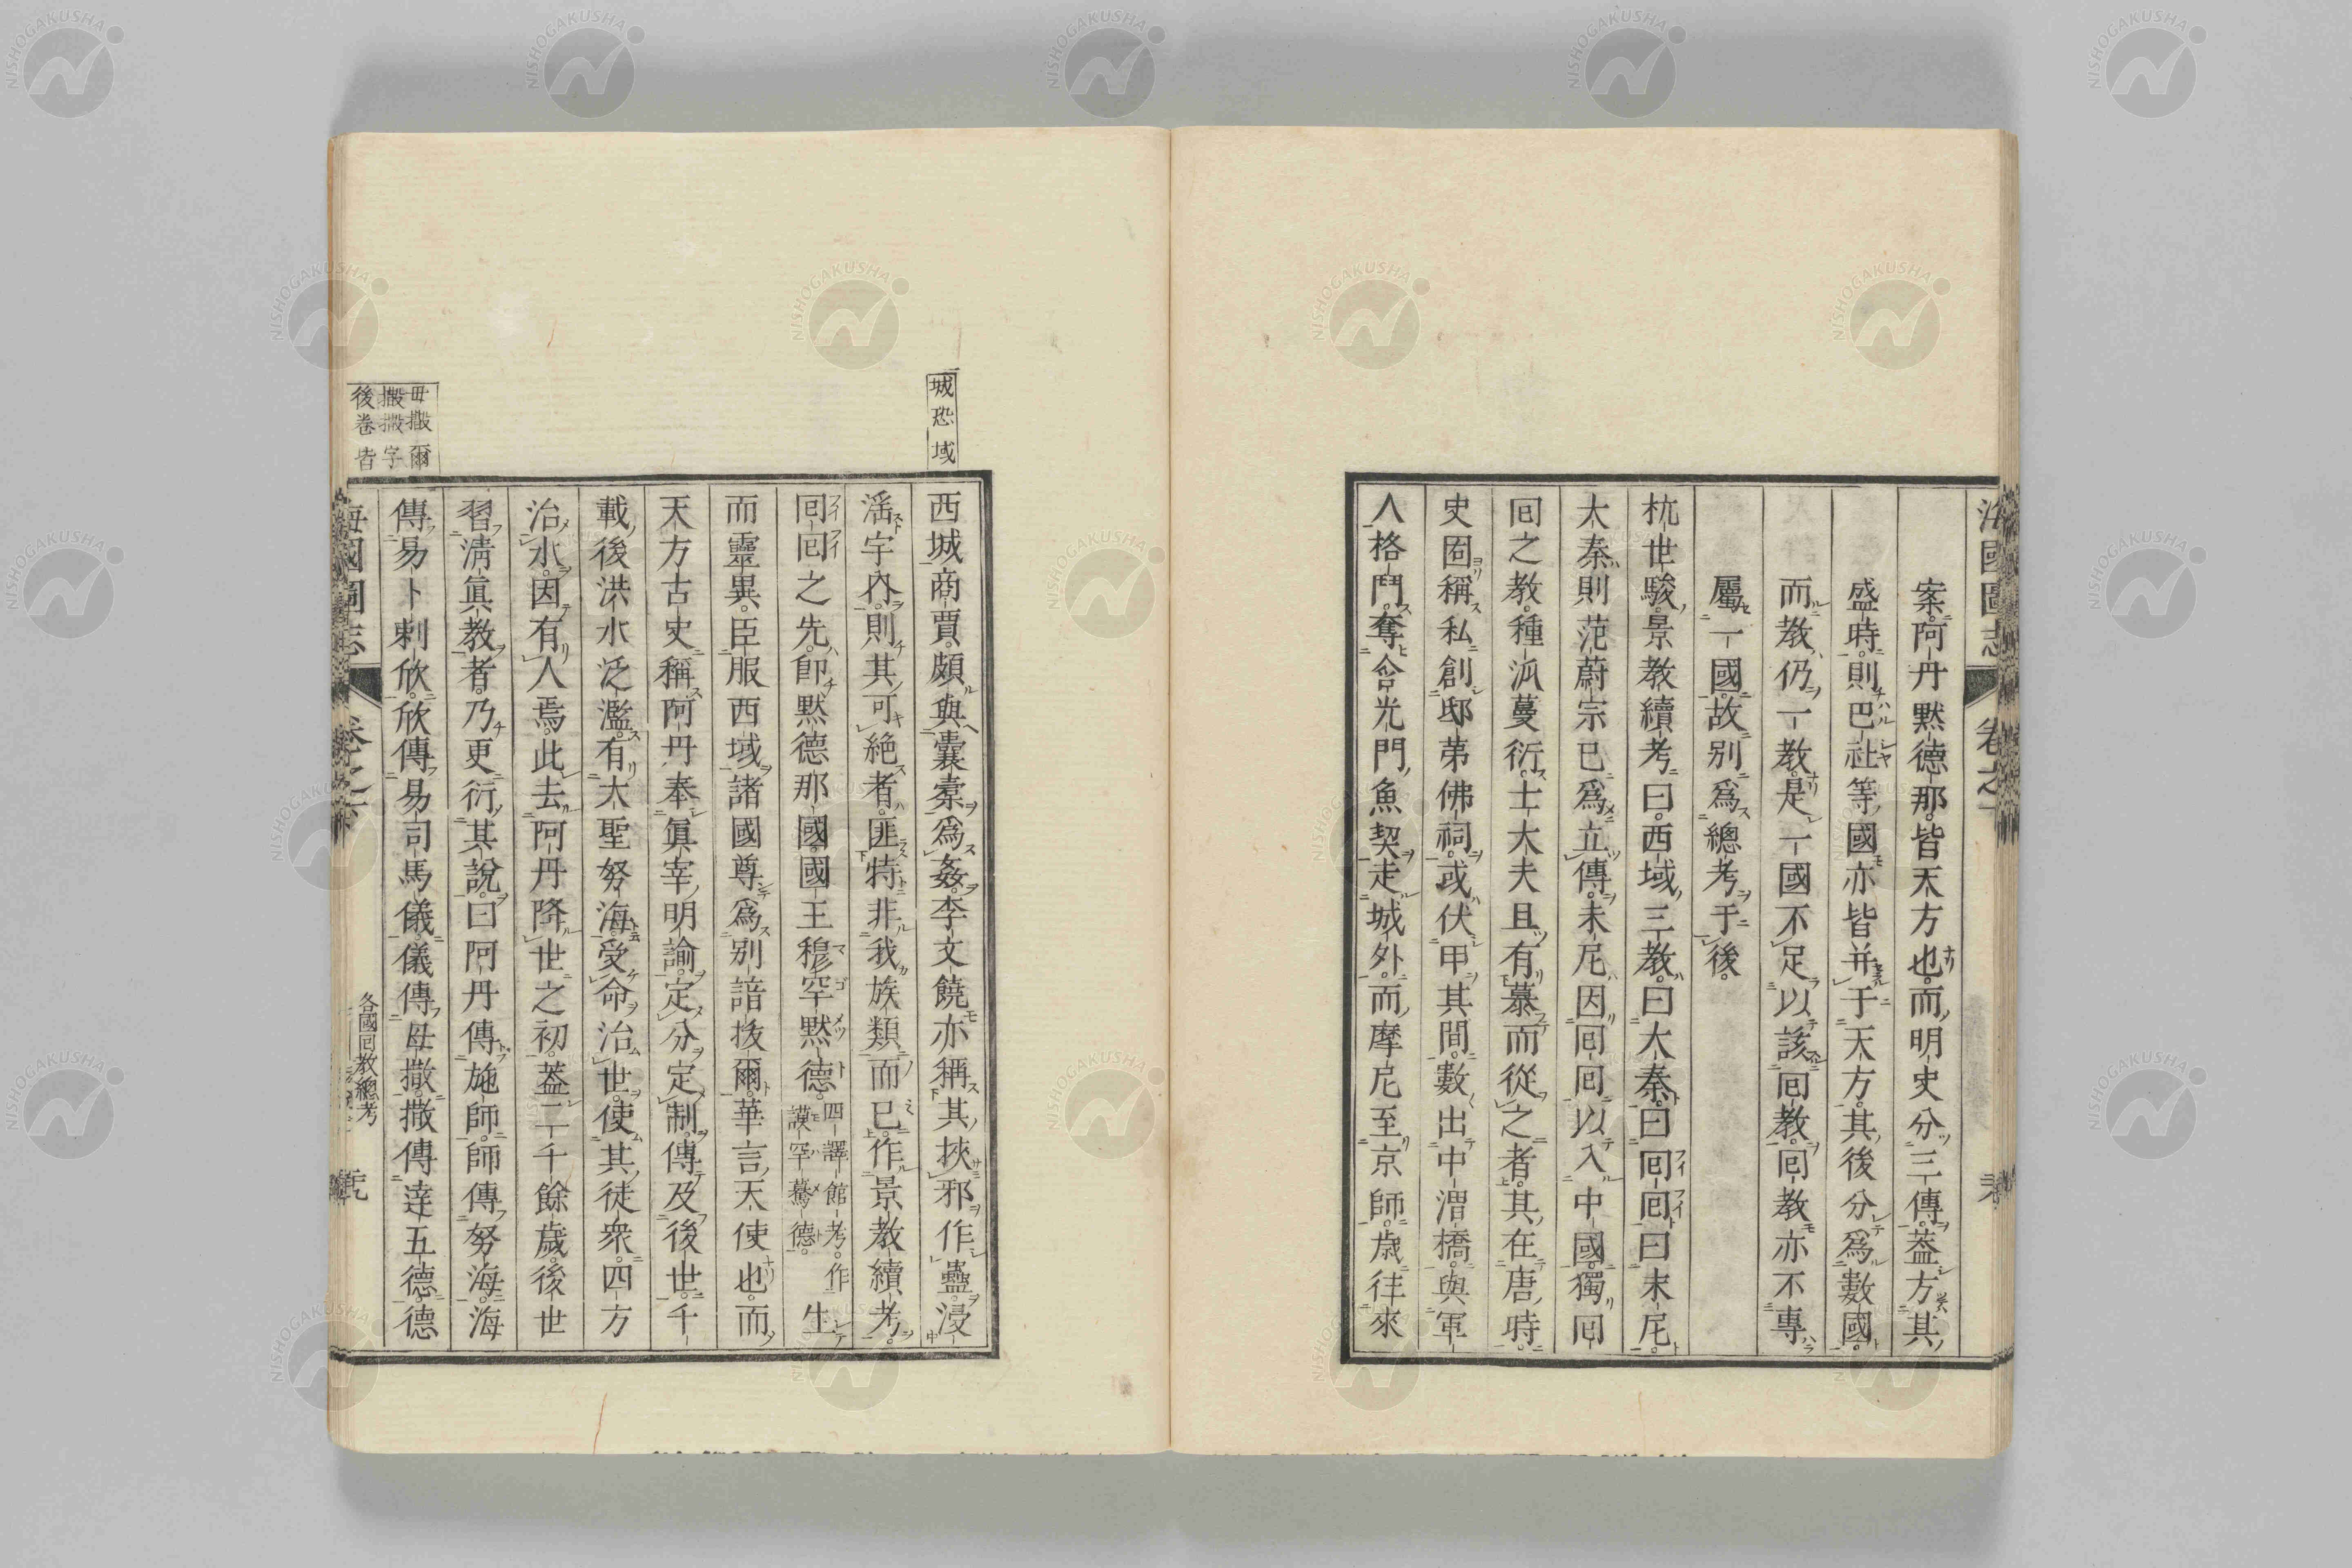 案阿丹默德那皆天方也而明史分三傳蓋方其
盛時則巴社等國亦皆并于天方其後分爲數國
而教仍一教是一國不足以該回教回教亦不專
屬一國故別爲總考于後
杭世駿景教續考曰西域三教曰大秦曰回回曰末尼
大秦則范蔚宗已爲立傳末尼因回回以入中國獨回
回之教種泒蔓衍士大夫且有慕而從之者其在唐時
史固稱私創邸第佛祠或伏甲其間數出中渭橋與軍
人格鬥奪含光門魚契走城外而摩尼至京師歲往來
城恐域
西城商賈頗與囊橐爲姦李文饒亦稱其挾邪作蠱浸
滛宇內則其可絶者匪特非我族類而已作景教續考
回回之先卽默德那國國王穆罕默德四譯館考作謨罕驀德生
而靈異臣服西域諸國尊爲别諳拔爾華言天使也而
天方古史稱阿丹奉眞宰明諭定分定制傳及後世千
載後洪水泛濫有大聖努海受命治世使其徒衆四方
治水因有人焉此去阿丹降世之初蓋二千餘歲後世
習清眞教者乃更衍其說曰阿丹傳施師師傳努海海
傳易卜剌欣欣傳易司馬儀儀傳母撒撒傳達五德德
各國回教總考